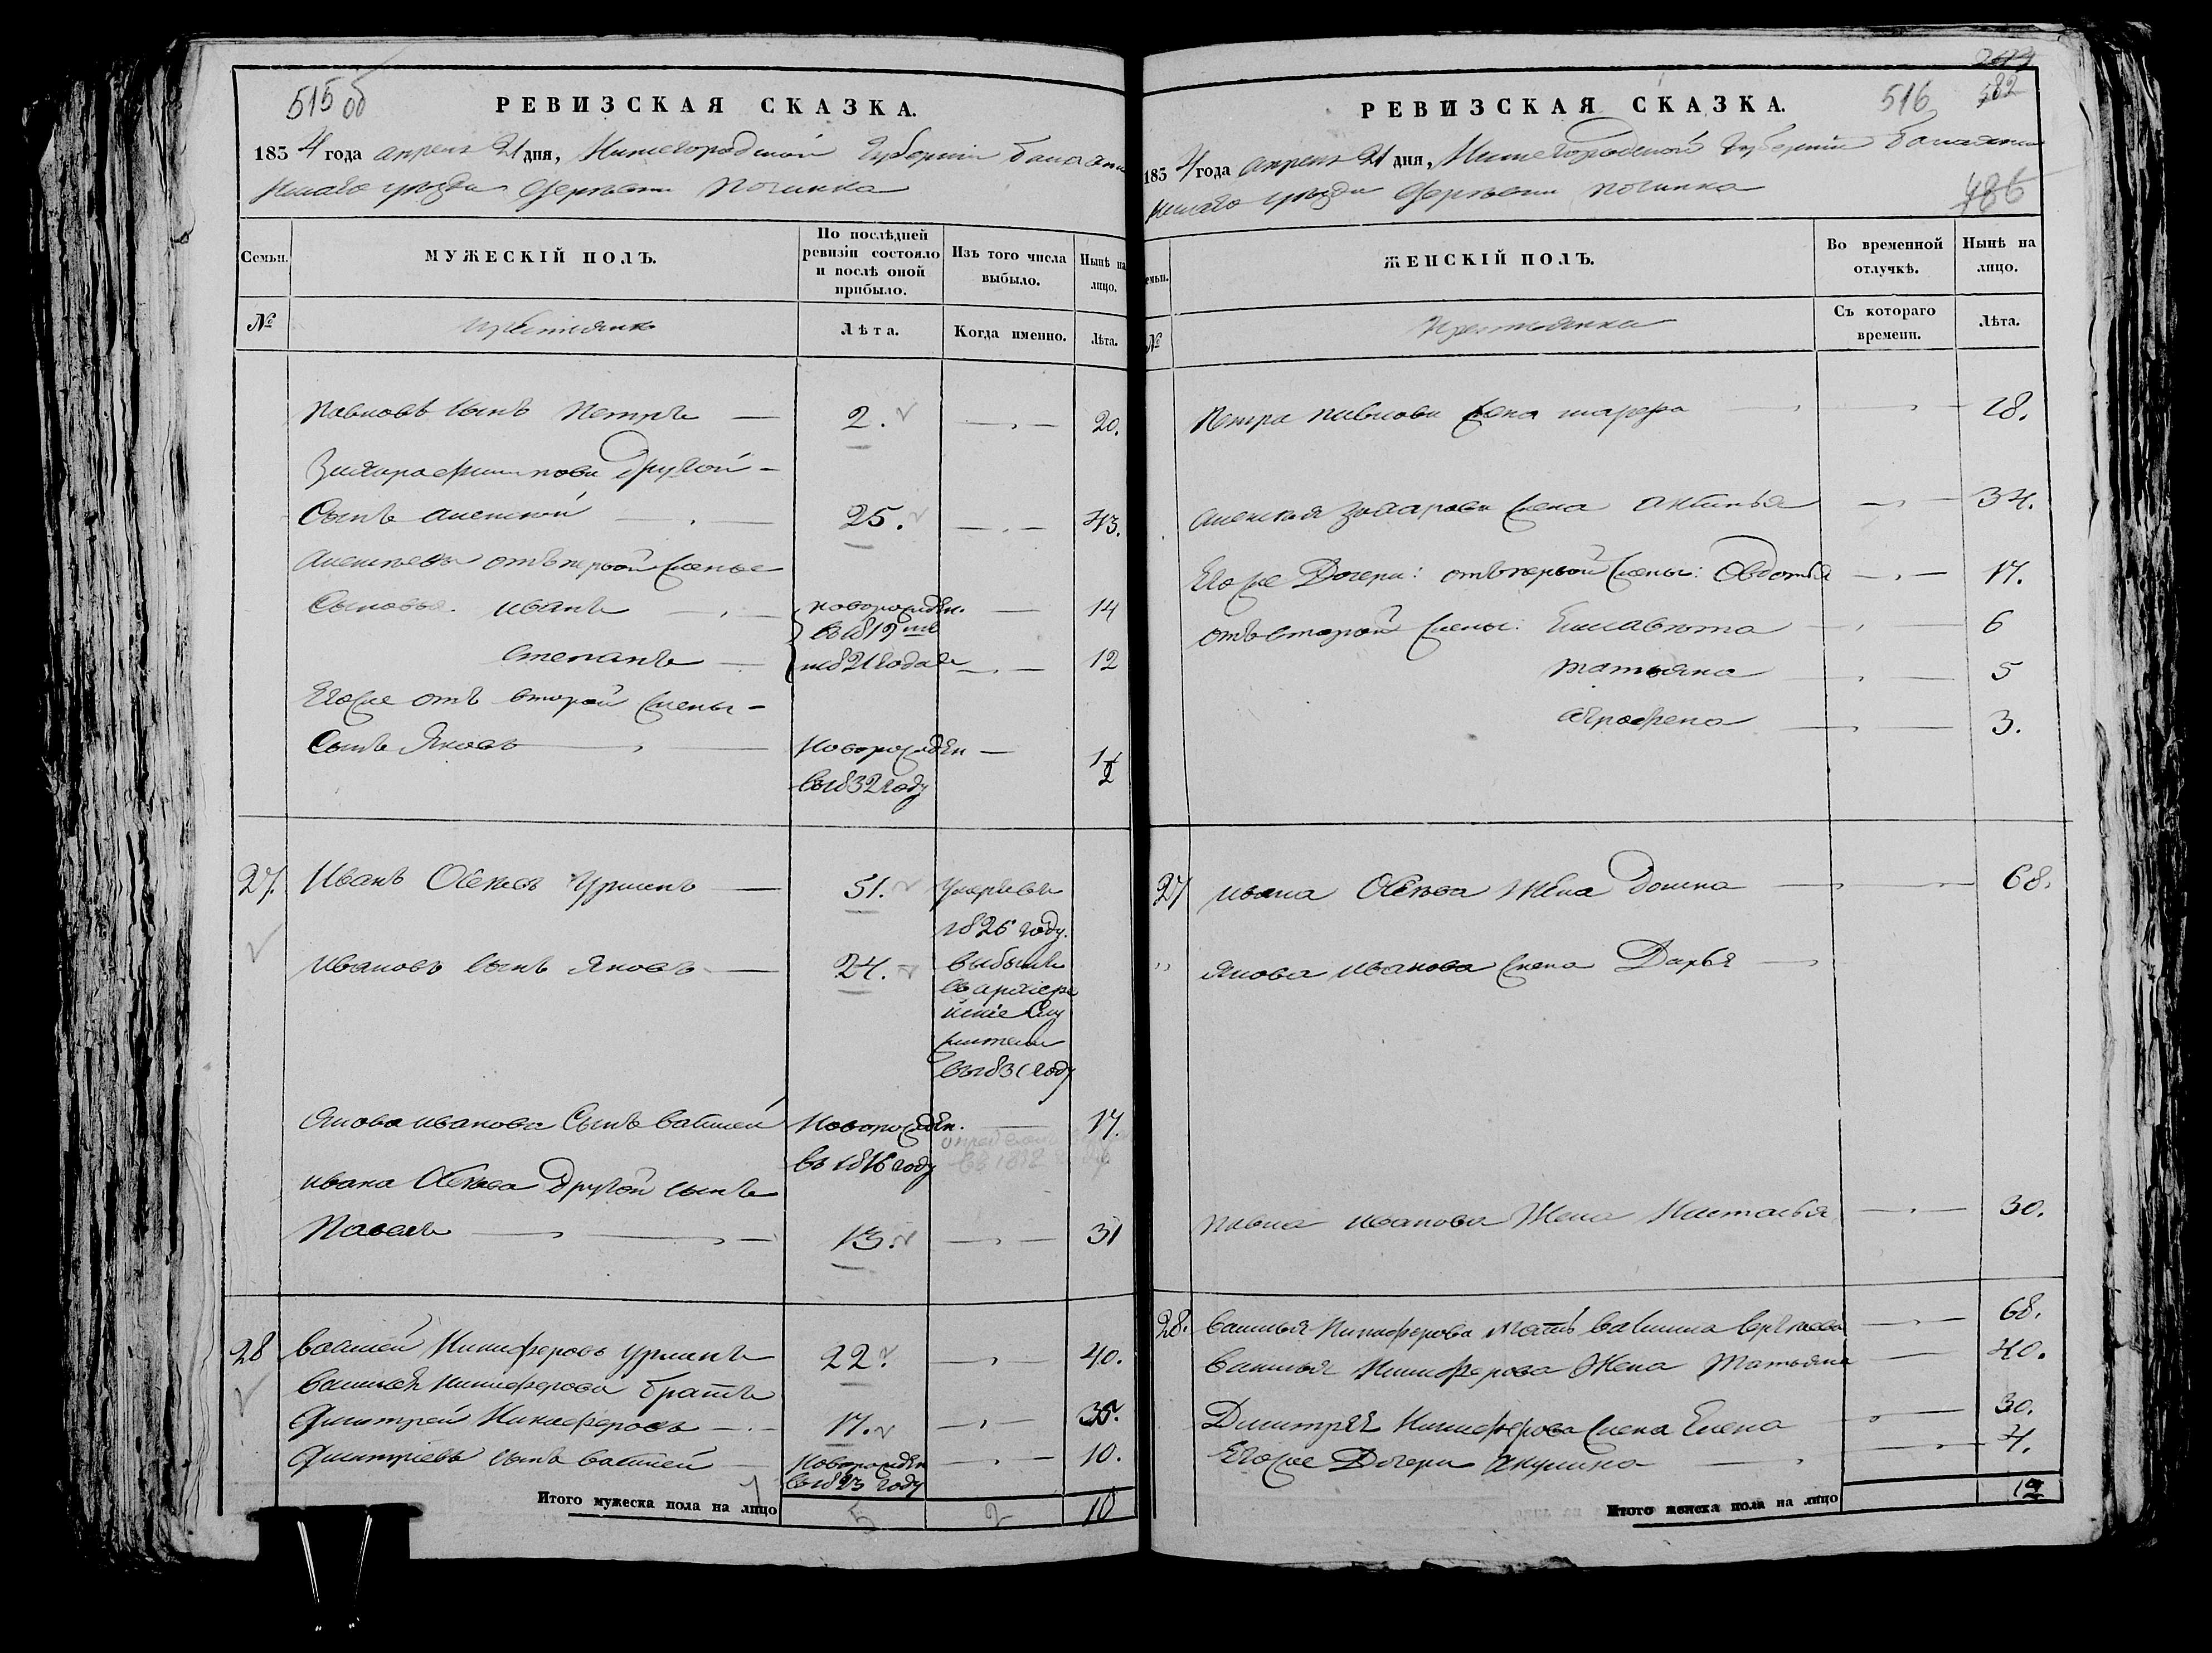 515 об
РЕВИЗСКАЯ СКАЗКА.
1834 года апреля 21 дня, Нижегородской Губерніи Балахнин
скаго уезда деревни Починка
Семьи.
МУЖЕСКІЙ ПОЛЪ.
По послѣдней ревизіи состояло и послѣ оной прибыло.
Изъ того числа выбыло.
Нынѣ на лицо.
№
Лѣта.
Когда именно.
Лѣта.
Павловъ сынъ Петръ — 2. — 20.
Захара другой —
Сынъ Алексей — 25. — 43.
Алексеевы отъ первой жены
Сыновья Иванъ — новорожден. — 14
въ 1819 м
Степанъ — 1821 годахъ — 12
Егоже отъ второй жены —
Сынъ Яковъ — Новорожден —
въ 1832 году
27. Иванъ Умеръ — 51. Умеръ въ
1826 году.
Ивановъ сынъ Яковъ — 24. выбылъ
въ архіере
йскіе Слу
жители
въ 1831 году
Якова Иванова Сынъ Василей Новорожден. — 17.
въ 1816 году
Ивана другой сынъ
Павелъ — 13. — 31
28 Василей Никифоровъ 22. — 40.
Василья Никифорова братъ
Дмитрей Никифоровъ — 17. — 35.
Дмитріевъ сынъ Василей — Новорожден — 10.
въ 1823 году
Итого мужеска пола на лицо 5 2 10
516
382
486
РЕВИЗСКАЯ СКАЗКА.
1834 года апреля 21 дня, Нижегородской Губерніи Балахнин
скаго уезда деревни Починка
Семьи.
ЖЕНСКІЙ ПОЛЪ.
Во временной отлучкѣ.
Нынѣ на лицо.
№
Съ котораго времени.
Лѣта.
Петра Павлова жена — 18.
Алексея Захарова жена — 34.
Егоже Дочери: отъ первой жены: Овдотья — 17.
отъ второй жены: Елисавета — 6
Татьяна — 5
Аграфена — 3.
27 Ивана жена Домна — 68.
" Якова Иванова жена Дарья —
Павла Иванова Жена Наталья — 30.
28. Василья Никифорова мать Василиса — 68.
Василья Никифорова Жена Татьяна — 40.
Дмитрея Никифорова жена Елена — 30.
Егоже Дочери Акулина — 4.
Итого женска пола на лицо 12